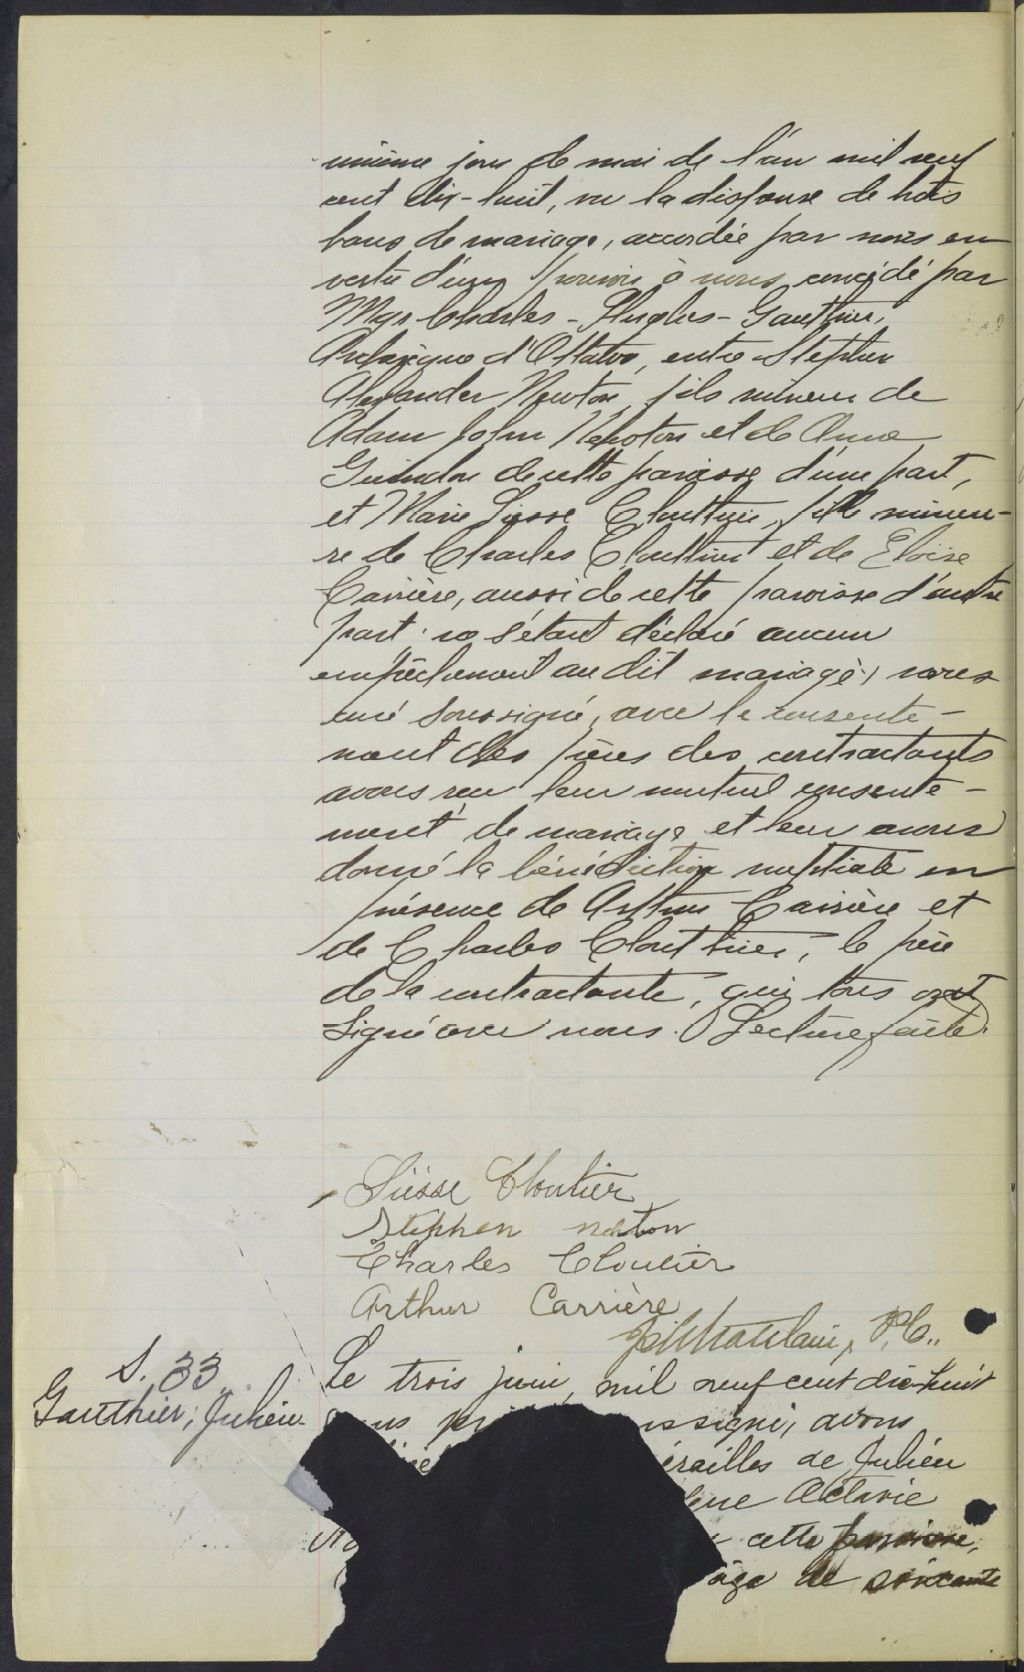 unième jour de mai de l'an mil neuf
cent dix-huit, vu la dispense de trois
bans de mariage, accordée par nous en
vertu d'un pouvoir à nous concédé par
Mgr Charles-Hughes-Gauthier,
Archevêque d'Ottawa, entre Stephen
Alexander Newton, fils mineur de
Adam John Newton et de Anna
Guindon de cette paroisse d'une part,
et Marie Liesse Clouthier, fille mineu-
re de Charles Clouthier et de Eloise
Carrière, aussi de cette paroisse d'autre
part; ne s'étant déclaré aucun
empêchement au dit mariage; nous
curé soussigné, avec le consente-
ment des pères des contractants
avons reçu leur mutuel consente-
ment de mariage et leur avons
donné la bénédiction nuptiale en
présence de Arthur Carrière et
de Charles Clouthier, le père
de la contractante, qui tous ont
signé avec nous. Lecture faite.
Liesse Cloutier
Stephen Newton
Charles Cloutier
Arthur Carrière
P.C.
S. 33
Gauthier, Julien
Le trois juin, mil neuf cent dix-huit
soussigné, avons
de Julien
Octavie
cette paroisse,
âge de soixante